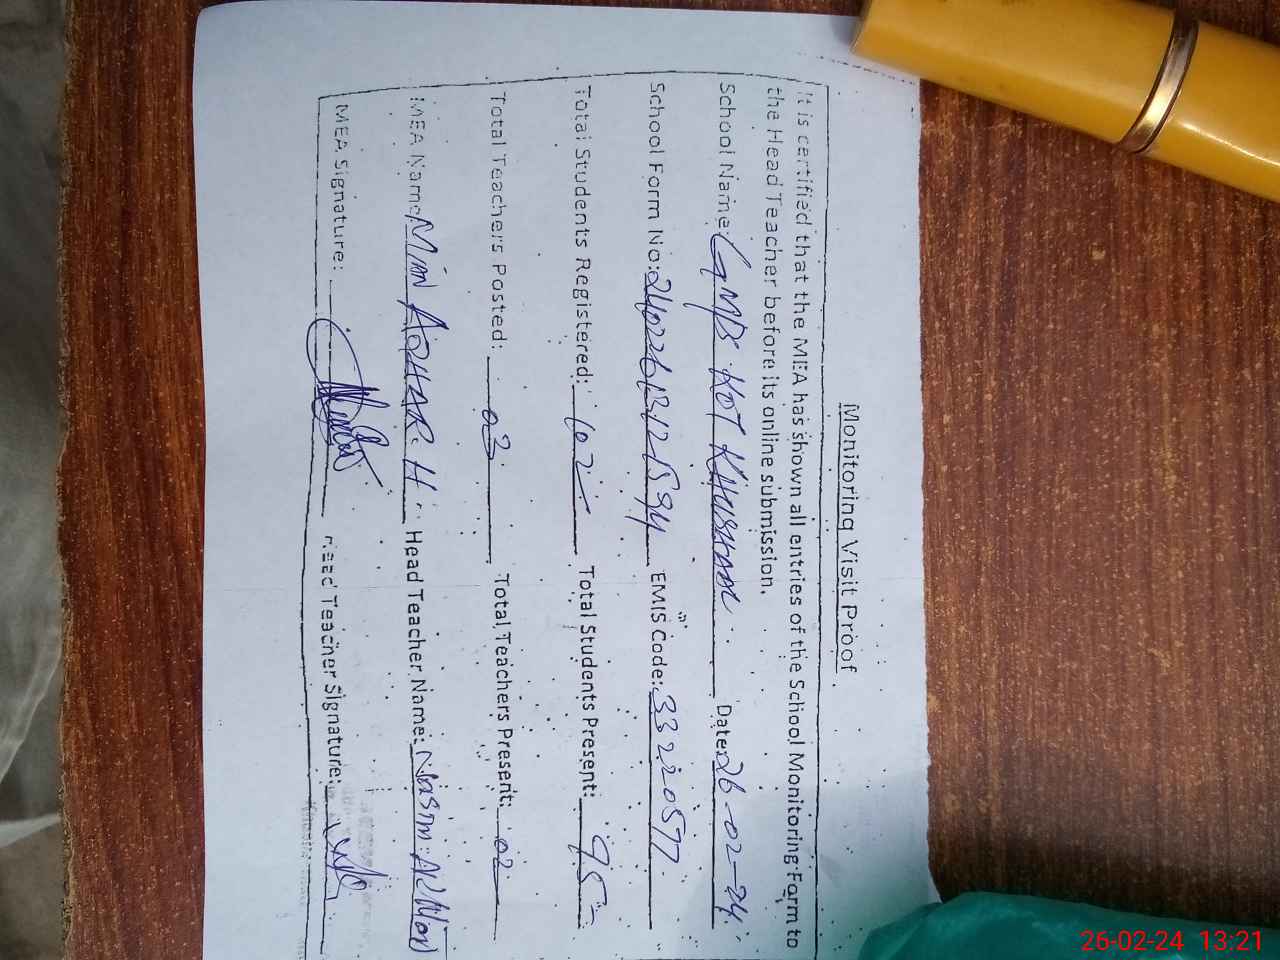 Monitoring Visit Proof
It is certified that the MEA has shown all entries of the School Monitoring Form to
the Head Teacher before its online submission.
School Name: GMPS KOT KHUSHAAL Date: 26-02-24
School Form No: EMIS Code: 33220577
Total Students Registered: 102 Total Students Present: 95
Total Teachers Posted: 03 Total Teachers Present: 02
MEA Name: MIAN AZHAR H Head Teacher Name:
MEA Signature: Head Teacher Signature:
26-02-24 13:21